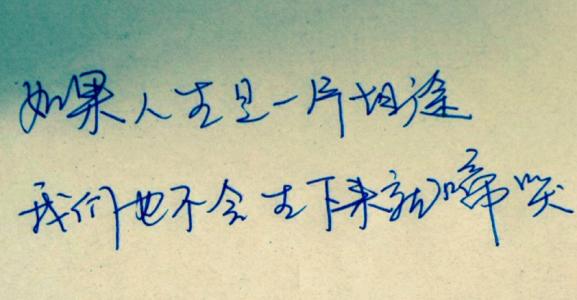 如果人生是一片坦途
我们也不会生下来就啼哭